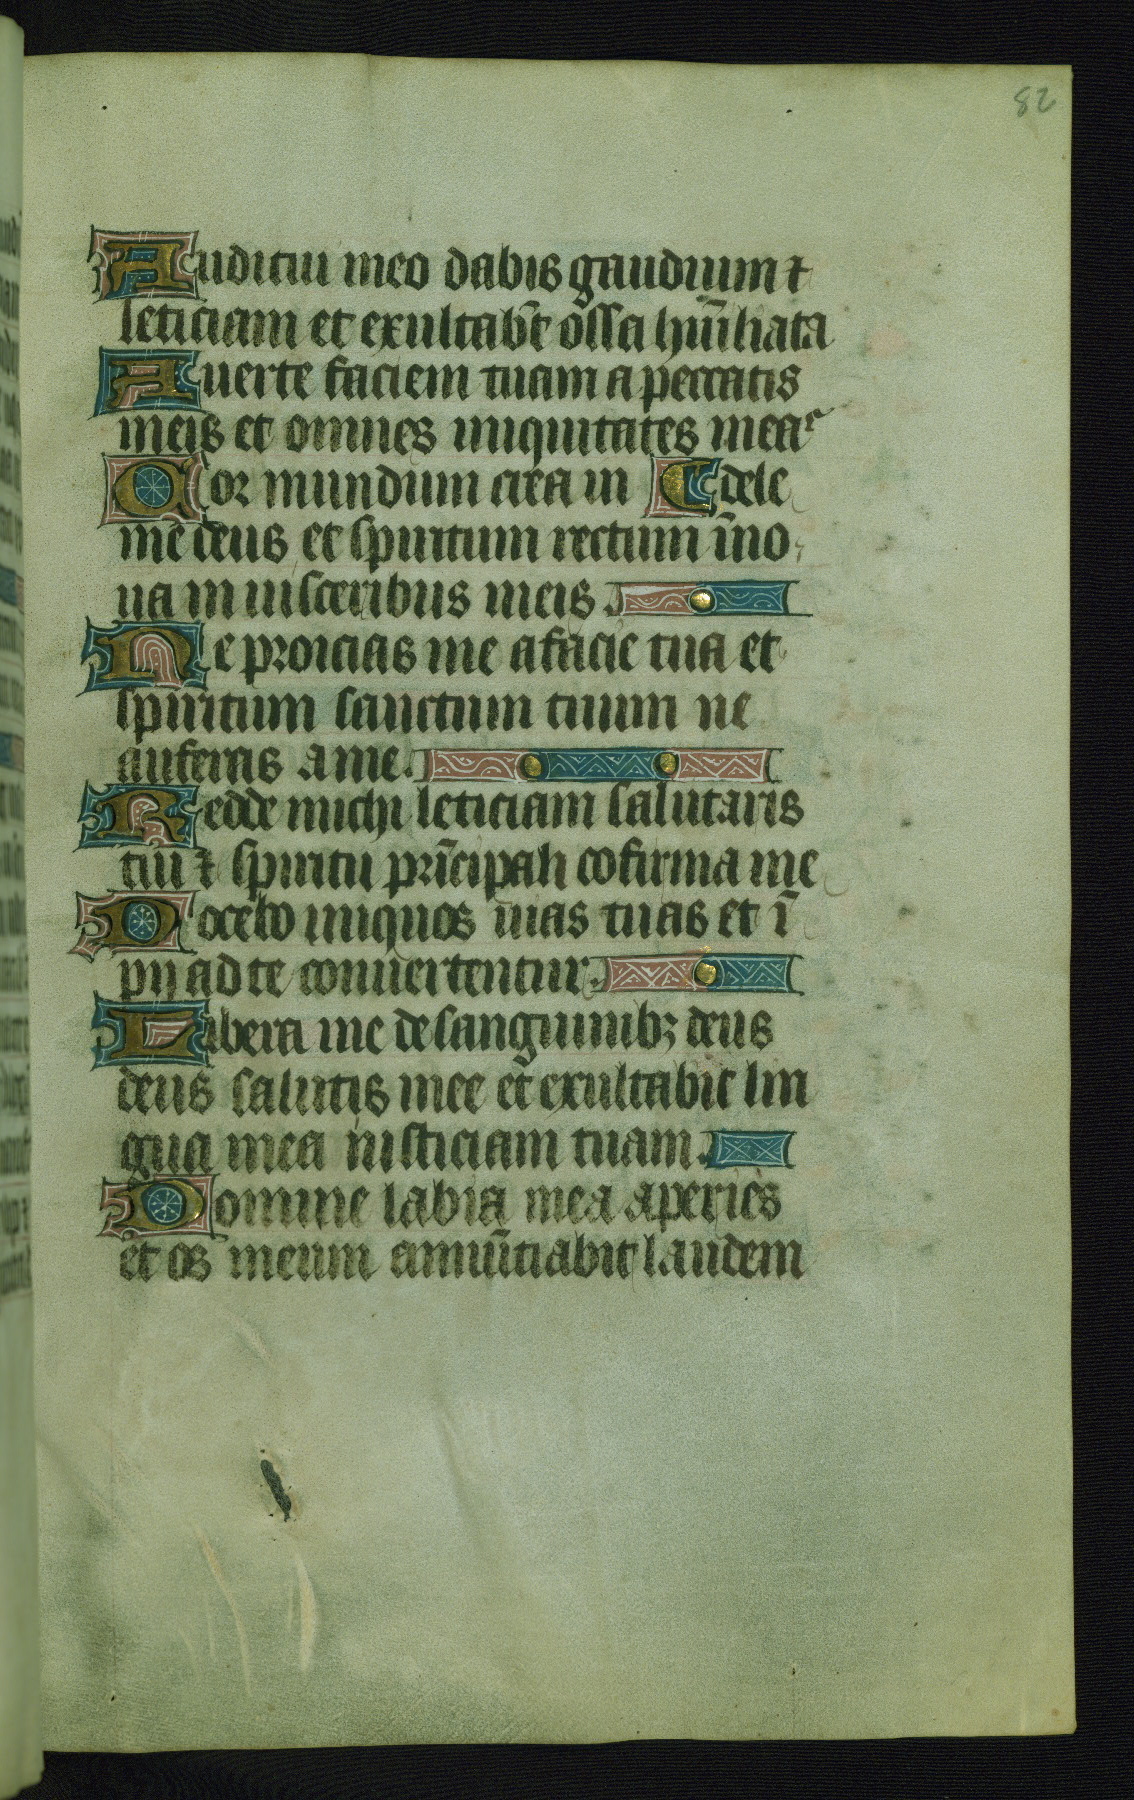 82
Auditui meo dabis gaudium ⁊
leticiam et exultabūt ossa humīliata
Auerte faciem tuam a peccatis
meis et omnes iniquitates meas
Cor mundum crea in Et dele
me deus et spiritum rectum īno
ua in uisceribus meis.
Ne proicias me a facie tua et
spiritum sanctum tuum ne
auferas a me.
Redde michi leticiam salutaris
tui ⁊ spiritu prīcipali cōfirma me
Docebo iniquos uias tuas et ī
pij ad te conuertentur.
Libera me de sanguinibꝫ deus
deus salutis mee et exultabit lin
gua mea iusticiam tuam.
Domine labia mea aperies
et os meum annūtiabit laudem